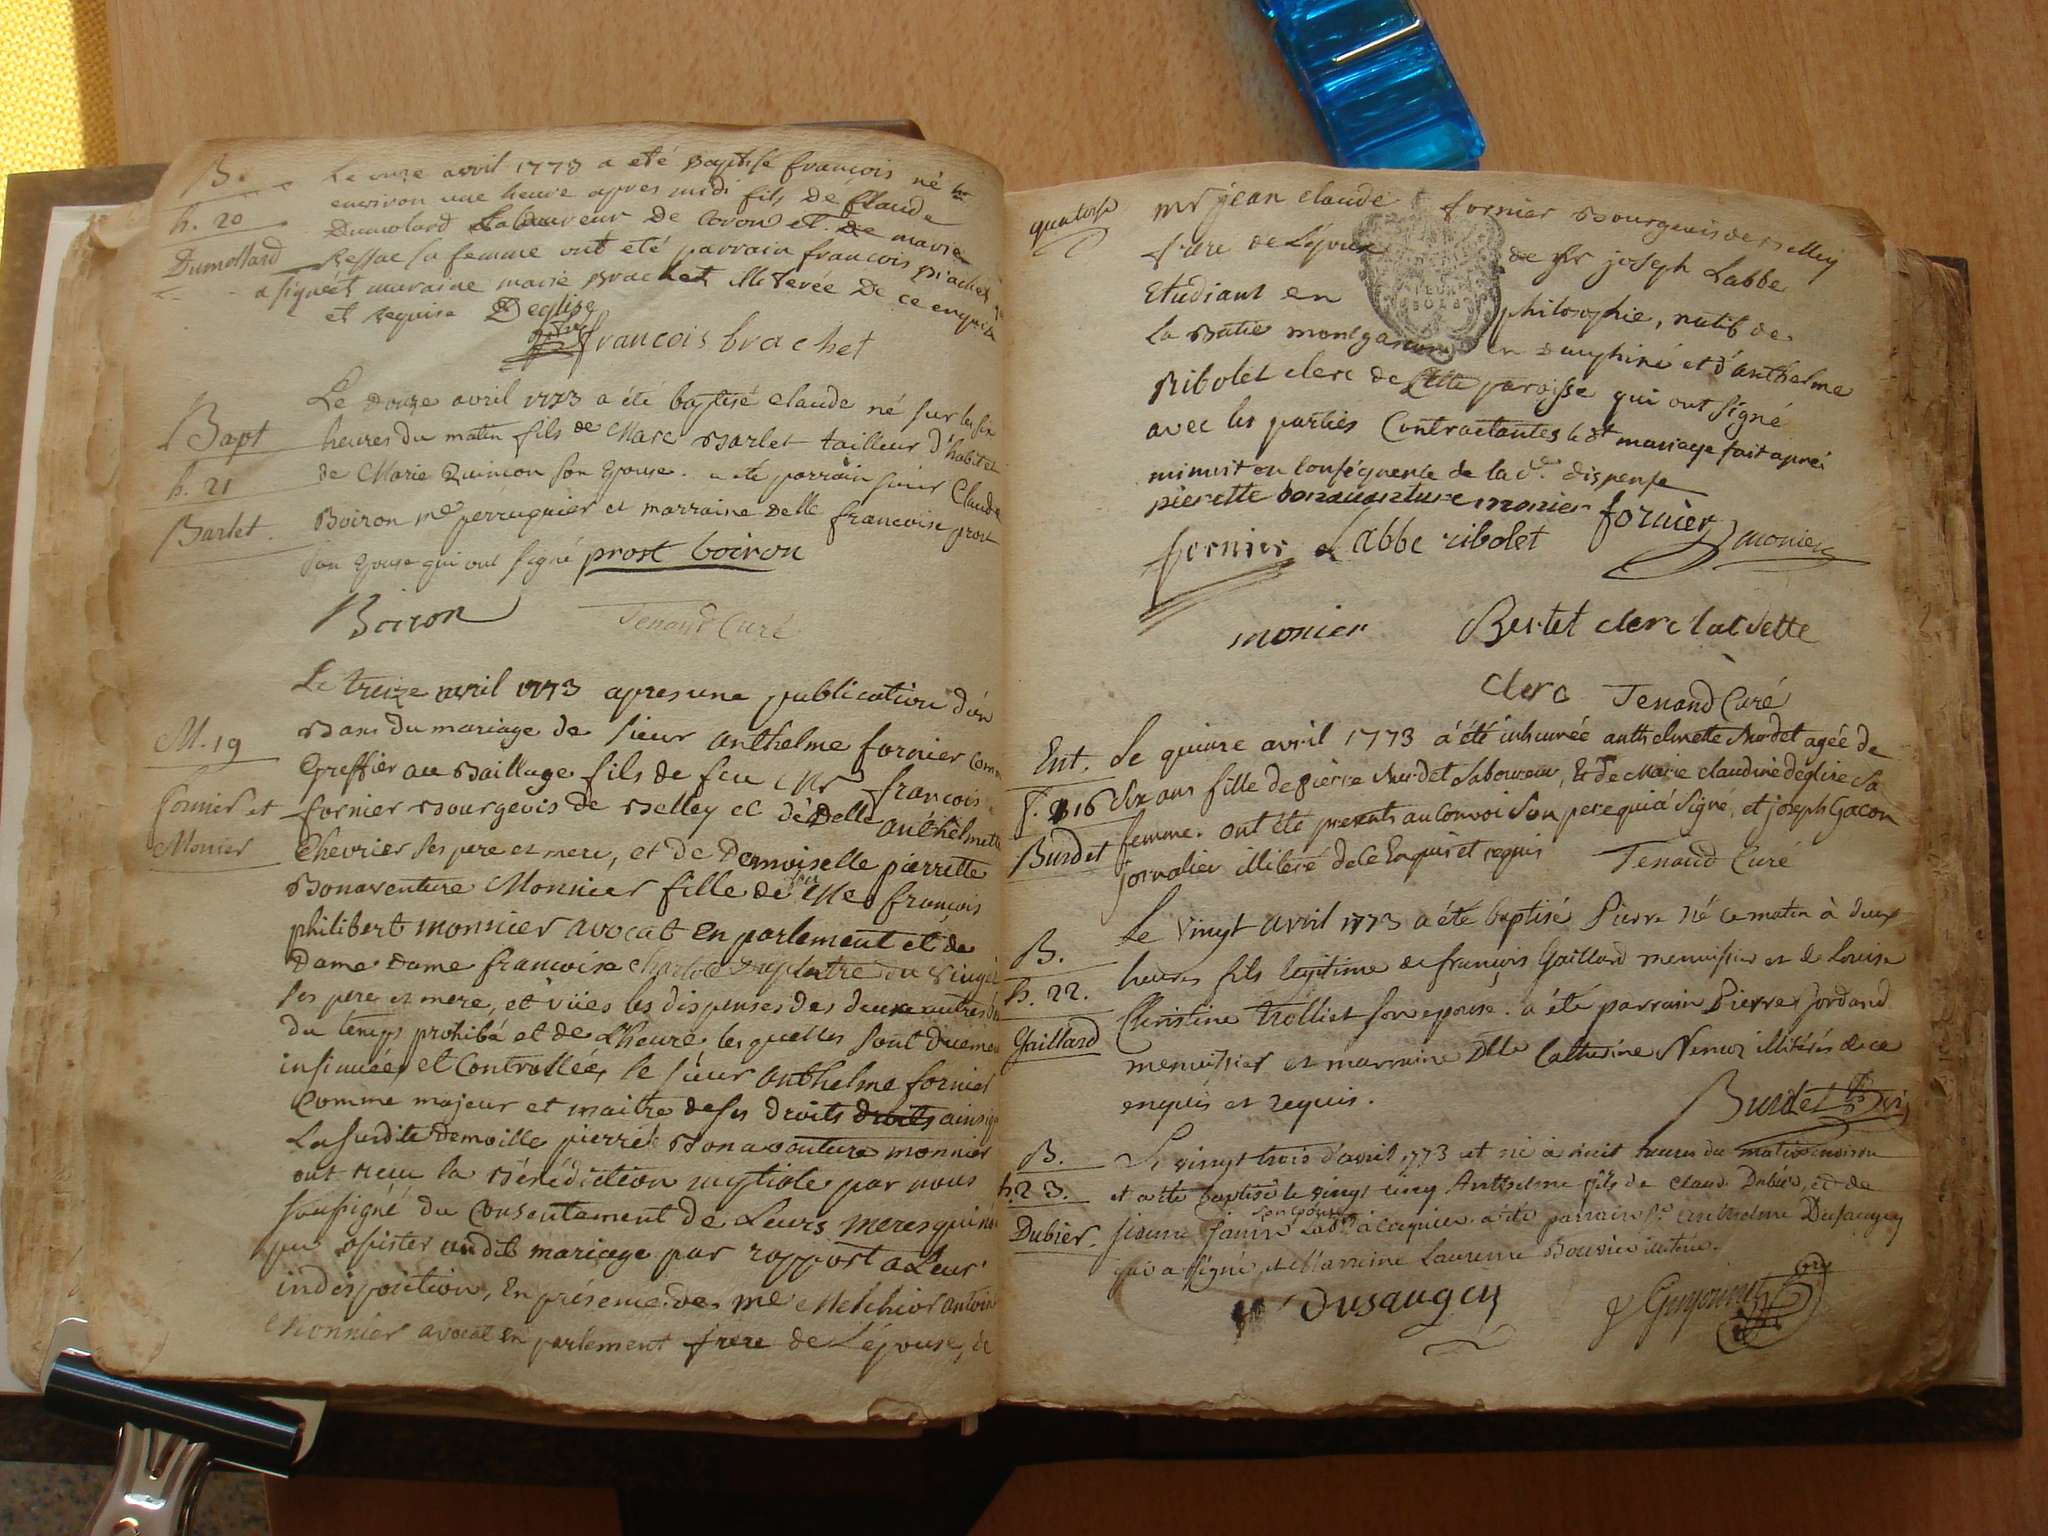 B.
h. 20
Dumollard
Le onze avril 1773 a eté Baptisé françois né
environ une heure apres midi fils De Claude
Dumolard Laboureur De Coron et de marie
Ressac sa femme ont eté parrain francois Brachet
a signé et maraine marie Brachet illiterée De ce enquise
et requise Deglise
francois brachet
Bapt
h. 21
Barlet.
Le douze avril 1773 a été baptisé claude né sur les six
heures du matin fils de Marc Barlet tailleur d'habit et
de Marie Quinson son epouse. a été parrain sieur Claude
Boiron me perruquier et marraine Delle francoise prost
son epouse qui ont signé prost boiron
Boiron Tenand Curé
M. 19
fornier et
Monier
Le treize avril 1773 apres une publication d'un
Bans du mariage de sieur anthelme fornier comm
Greffier au Baillage fils de feu Mr françois
fornier Bourgeois de Belley et de Delle anthelmette
Chevrier ses pere et mere, et de Demoiselle pierrette
Bonaventure Monnier fille de feu Me françois
philibert monnier avocat En parlement et de
Dame Dame francoise charlote
ses pere et mere, et vües les dispenses des deux autres
du temps prohibé et de L'heure les quelles sont duement
insinuées et Controllées, le sieur anthelme fornier
Comme majeur et maitre de ses droits droits ainsi
La susdite Demoille pierrete Bonaventure monnier
ont reçu la Bénédiction nuptiale par nous
soussigné du Consentement de Leurs meres qui n'ont
pu assister audit mariage par rapport a Leur
indisposition, En présence de me Melchior antoine
Monnier avocat en parlement frere de L'épouse, de
quatorze
mr jean claude fornier Bourgeois de Belley
frere de L'époux de Sr joseph Labbe
Etudiant en philosophie, natif de
la Batie montgascon en Dauphiné et d'anthelme
Ribolet clerc de cette paroisse qui ont signé
avec les parties Contractantes le dt mariage fait après
minuit en Conséquence de la de dispense
pierette bonavanture monier fornier
fernier Labbe ribolet monier
monier Bertet clerc
clerc Tenand Curé
Ent.
f. 16
Burdet
Le quinze avril 1773 a été inhumée anthelmette Burdet agée de
six ans fille de pierre Burdet Laboureur, Et de Marie claudine deglise sa
femme. ont été presents au Convoi son pere qui a signé, et joseph Gacon
jornalier illiteré de ce Enquis et requis Tenand Curé
B.
h. 22.
Gaillard
Le vingt avril 1773 a été baptisé Pierre né ce matin à deux
heures fils legitime de françois Gaillard menuisier et de Louise
Christine trolliet son epouse. a été parrain Pierre Jordand
menuisier et marraine Dlle Catherine illitérés de ce
enquis et requis.
Burdet
B.
h. 23.
Dubier.
Le vingt trois d'avril 1773 et né à huit heures du matin environ
et a été baptisé le vingt cinq Anthelme fils de claude Dubier, et de
jeanne son epouse a été parrain Sr anthelme Dusaugey
qui a signé, et Marraine Laurence Bouvier illiterée.
Dusaugey